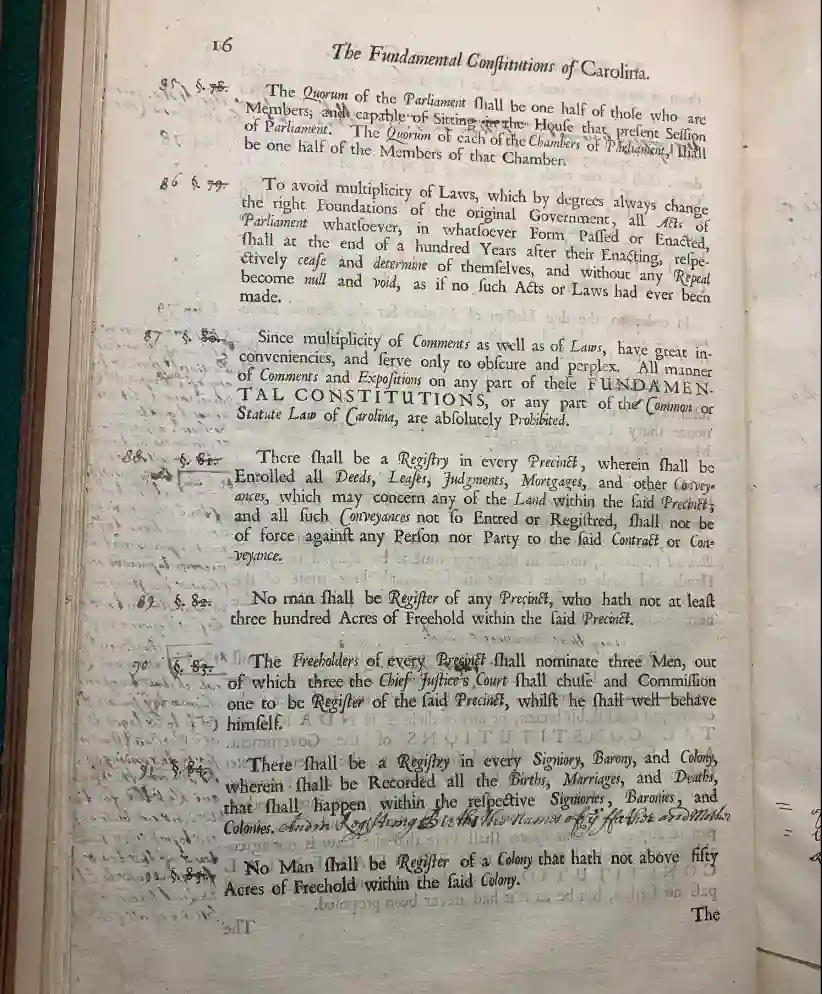 16
The Fundamental Conſtitutions of Carolina.
85 §. 78. The Quorum of the Parliament ſhall be one half of thoſe who are
Members, and capable of Sitting in the Houſe that preſent Seſſion
of Parliament. The Quorum of each of the Chambers of Parliament, ſhall
be one half of the Members of that Chamber.
86 §. 79. To avoid multiplicity of Laws, which by degrees always change
the right Foundations of the original Government, all Acts of
Parliament whatſoever, in whatſoever Form Paſſed or Enacted,
ſhall at the end of a hundred Years after their Enacting, reſpe-
ctively ceaſe and determine of themſelves, and without any Repeal
become null and void, as if no ſuch Acts or Laws had ever been
made.
87 §. 80. Since multiplicity of Comments as well as of Laws, have great in-
conveniencies, and ſerve only to obſcure and perplex. All manner
of Comments and Expoſitions on any part of theſe FUNDAMEN-
TAL CONSTITUTIONS, or any part of the Common or
Statute Law of Carolina, are abſolutely Prohibited.
88 §. 81. There ſhall be a Regiſtry in every Precinct, wherein ſhall be
Enrolled all Deeds, Leaſes, Judgments, Mortgages, and other Convey-
ances, which may concern any of the Land within the ſaid Precinct;
and all ſuch Conveyances not ſo Entred or Regiſtred, ſhall not be
of force againſt any Perſon nor Party to the ſaid Contract or Con-
veyance.
§. 82. No man ſhall be Regiſter of any Precinct, who hath not at leaſt
three hundred Acres of Freehold within the ſaid Precinct.
90 §. 83. The Freeholders of every Precinct ſhall nominate three Men, out
of which three the Chief Juſtice's Court ſhall chuſe and Commiſſion
one to be Regiſter of the ſaid Precinct, whilſt he ſhall well behave
himſelf.
91 §. 84. There ſhall be a Regiſtry in every Signiory, Barony, and Colony,
wherein ſhall be Recorded all the Births, Marriages, and Deaths,
that ſhall happen within the reſpective Signiories, Baronies, and
Colonies. And in Registring Births the names of yͤ ffather and Mother
§. 85. No Man ſhall be Regiſter of a Colony that hath not above fifty
Acres of Freehold within the ſaid Colony.
The